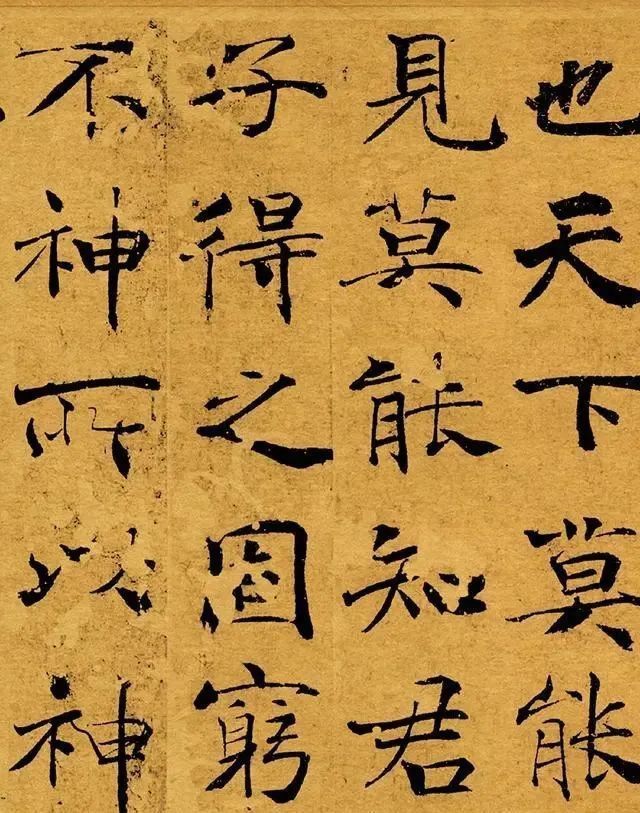 也天下莫能
見莫能知君
子得之固窮
不神所以神